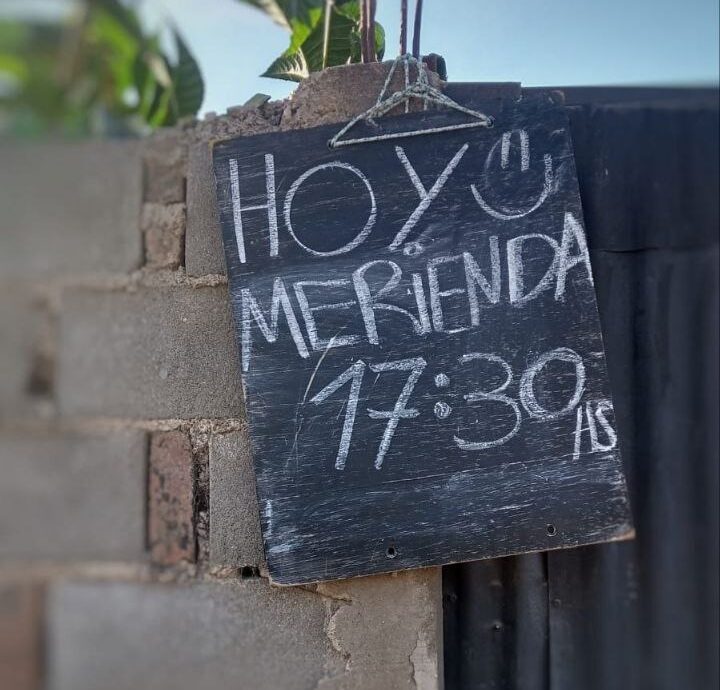 HOY
MERiENDA
17:30
HS